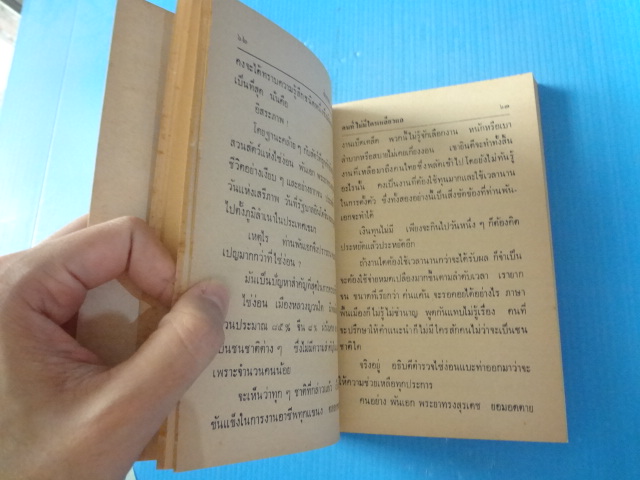 ๖๒
คงจะได้ทราบความรู้สึก
เป็นที่สุด นั่นคือ
อิสระภาพ !
โดยฐานะคล้าย ๆ กับ
สวนสัตว์แห่งไซ่ง่อน พันเอก
ชีวิตอย่างเงียบ ๆ และอย่าง
วันแห่งเสรีภาพ วันที่รัฐบาล
ไปตั้งภูมิลำเนาในประเทศเขมร
เหตุไร ท่านพันเอกจึง
เปญมากกว่าที่ไซ่ง่อน ?
มันเป็นปัญหาสำคัญที่สุด
ไซ่ง่อน เมืองหลวงญวนใต้
วนประมาณ ๘๕% จีน
เป็นชนชาติต่าง ๆ ซึ่งไม่มีความ
เพราะจำนวนคนน้อย
จะเห็นว่าทุก ๆ ชาติที่กล่าวแล้ว
ขันแข็งในการงานอาชีพทุกแขนง
คนที่ไม่มีใครเหลียวแล ๖๓
งานเบ็ดเตล็ด พวกนี้ไม่รู้จักเลือกงาน หนักหรือเบา
ลำบากหรือสบายไม่เคยเกี่ยงงอน เขายินดีจะทำทั้งสิ้น
งานที่เหลือมาถึงคนไทยซึ่งพลัดเข้าไป โดยยังไม่ทันรู้
อะไรนั้น คงเป็นงานที่ต้องใช้ทุนมากและใช้เวลานาน
ในการตั้งตัว ซึ่งทั้งสองอย่างนี้เป็นสิ่งขัดข้องที่ท่านพัน-
เอกจะทำได้
เงินทุนไม่มี เพียงจะกินไปวันหนึ่ง ๆ ก็ต้องคิด
ประหยัดแล้วประหยัดอีก
ถ้างานใดต้องใช้เวลานานกว่าจะได้รับผล ก็จำเป็น
จะต้องใช้จ่ายหมดเปลืองมากขึ้นตามลำดับเวลา เรายาก
จน ขนาดที่เรียกว่า ค่นแค้น จะรอคอยได้อย่างไร ภาษา
พื้นเมืองก็ไม่รู้ไม่ชำนาญ พูดกันแทบไม่รู้เรื่อง คนที่
จะปรึกษาให้คำแนะนำก็ไม่มีใครสักคนไม่ว่าจะเป็นชน
ชาติใด
จริงอยู่ อธิบดีตำรวจไซ่ง่อนแบะท่าออกมาว่าจะ
ให้ความช่วยเหลือทุกประการ
คนอย่าง พันเอก พระยาทรงสุรเดช ยอมอดตาย